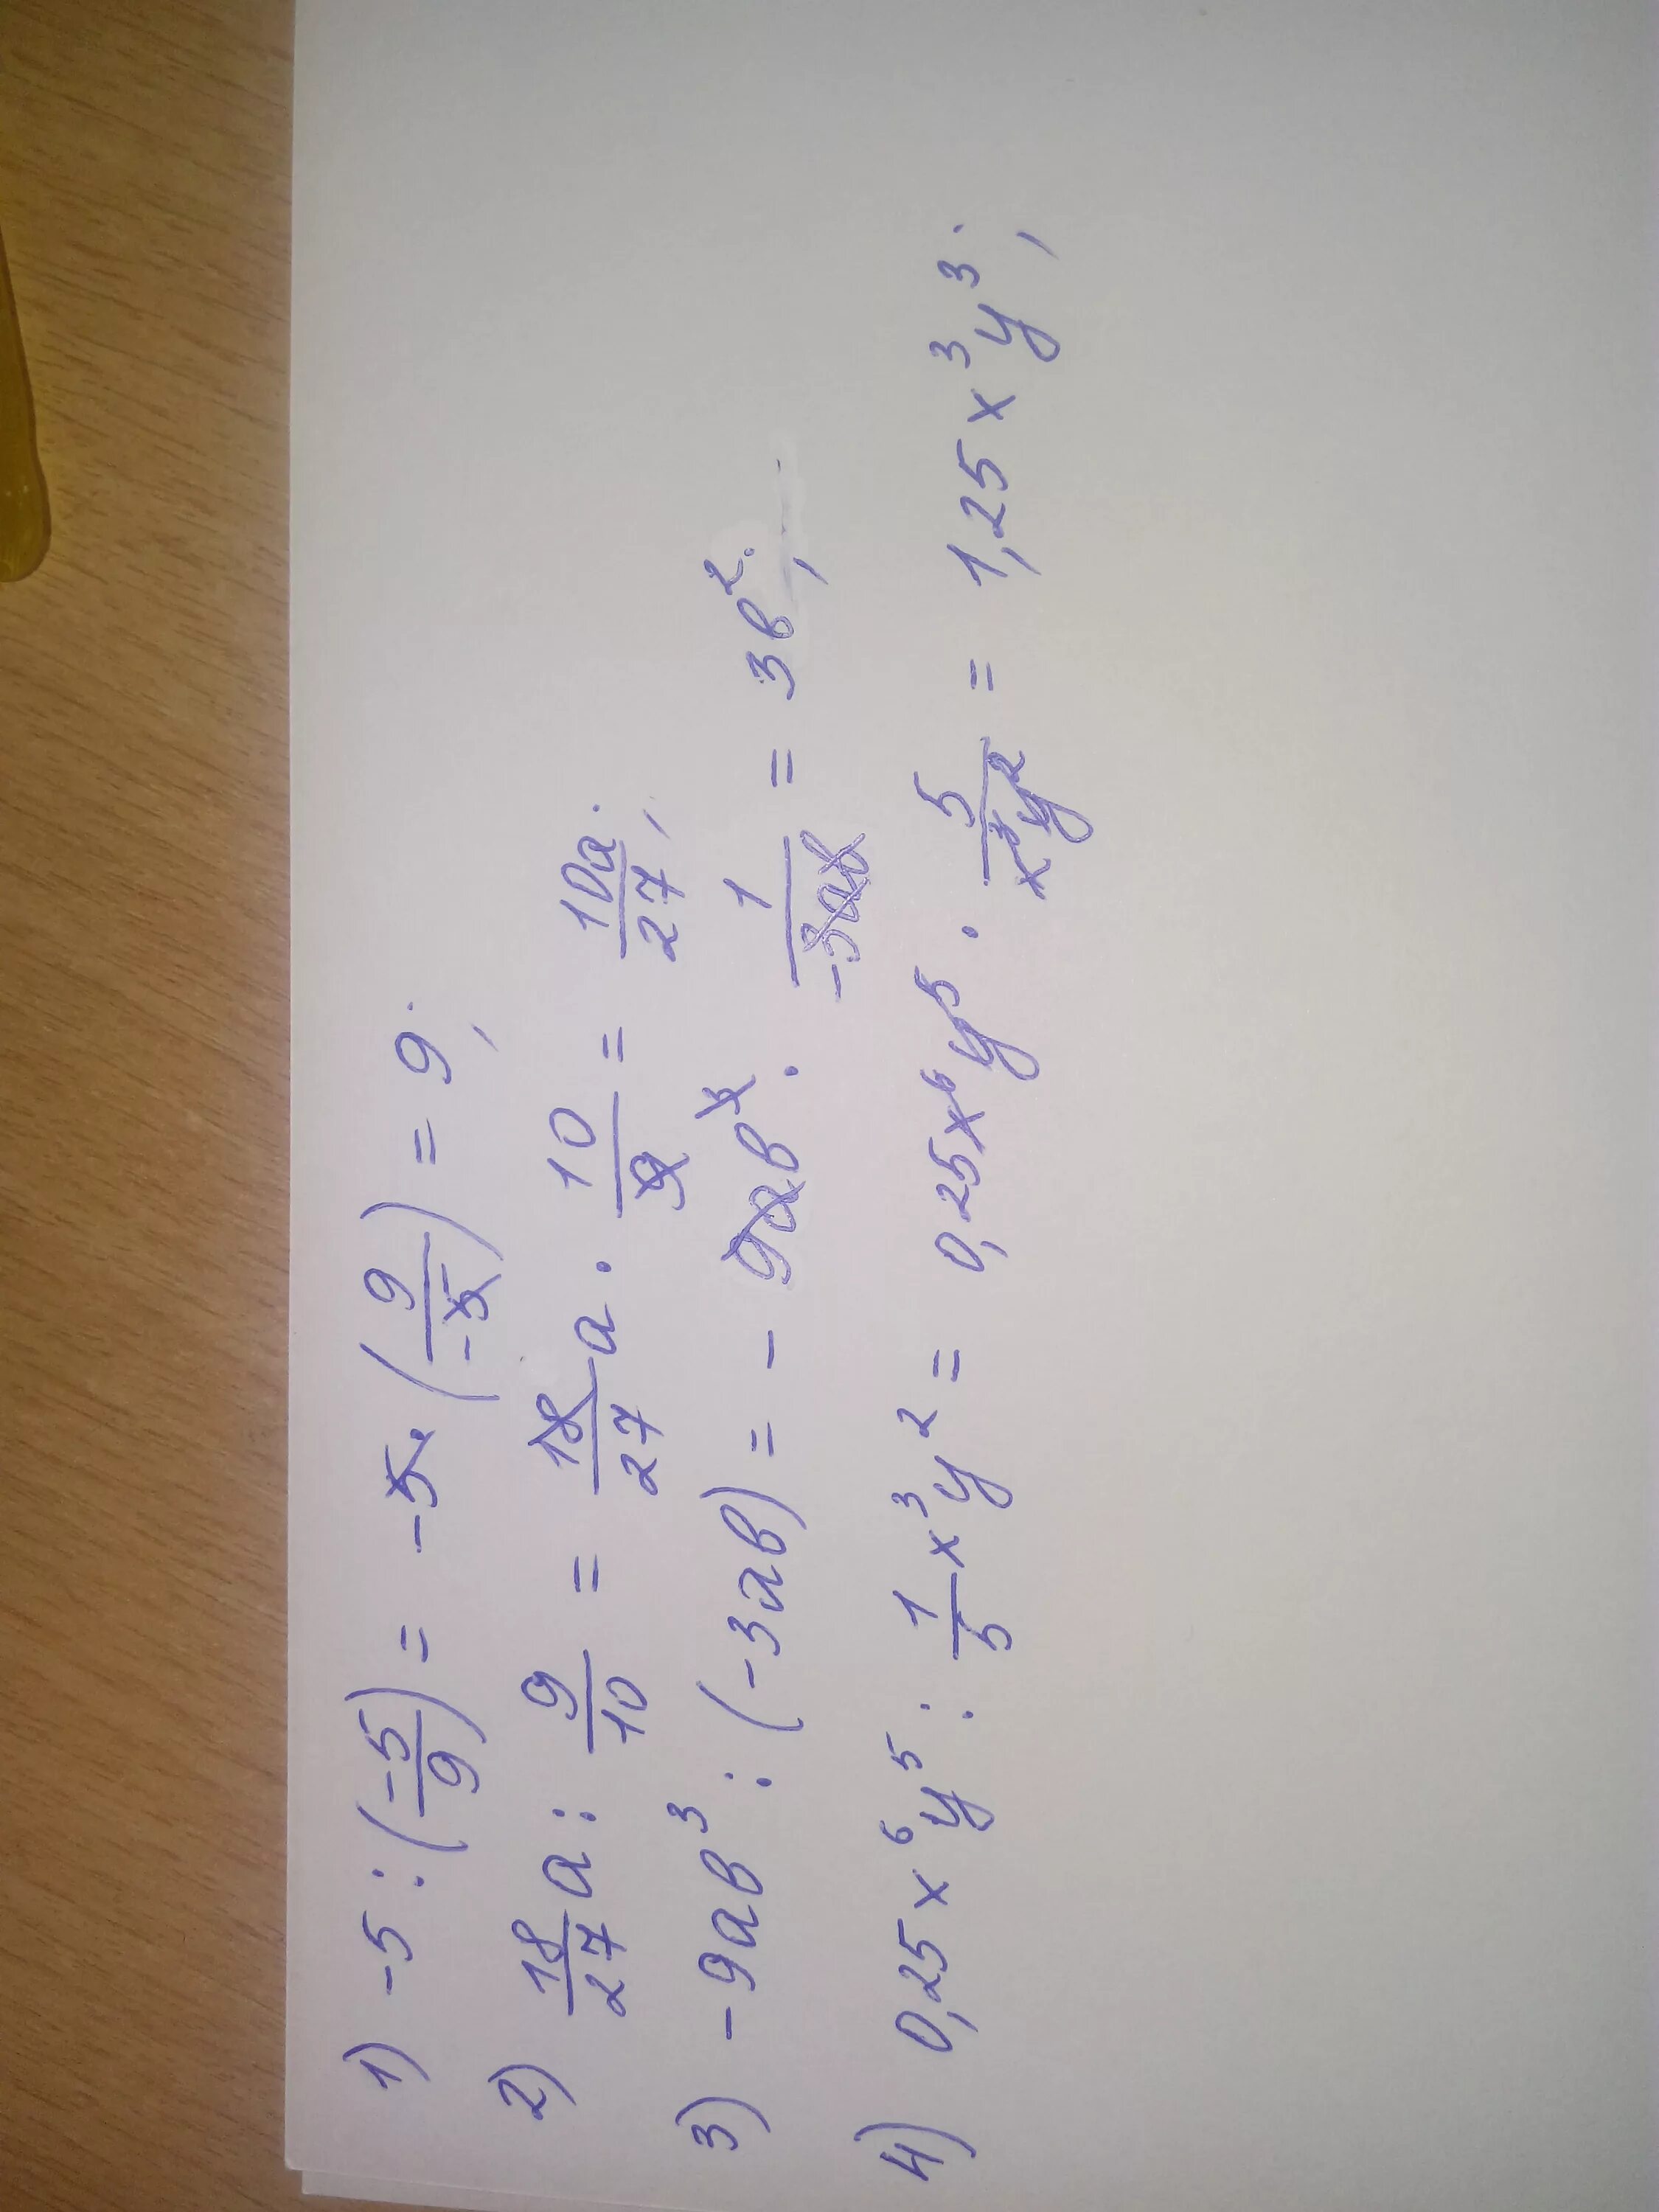 1) -5 : (-5/9) = -5 · (9/-5) = 9;
2) 18/27 a : 9/10 = 18/27 a · 10/9 = 10a/27;
3) -9ab³ : (-3ab) = -9ab³ · 1/-3ab = 3b²;
4) 0,25x⁶y⁵ : 1/5 x³y² = 0,25x⁶y⁵ · 5/x³y² = 1,25x³y³;